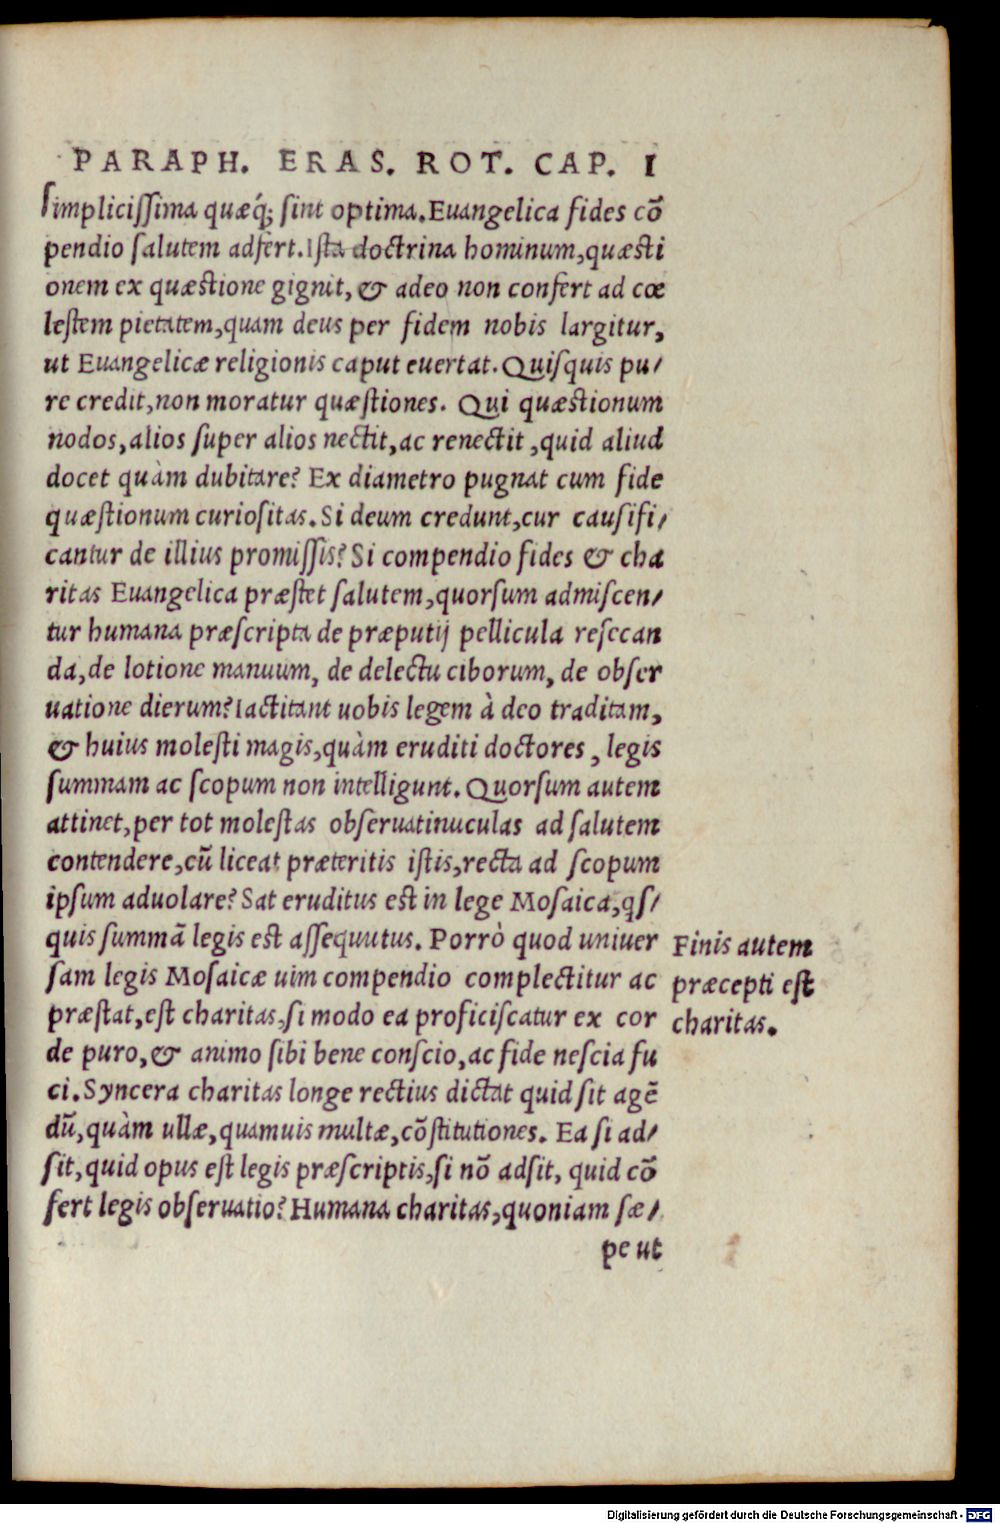 PARAPH. ERAS. ROT. CAP. I
ſimpliciſſima quæq́; ſint optima. Euangelica fides cō
pendio ſalutem adfert. Iſta doctrina hominum, quæſti
onem ex quæſtione gignit, & adeo non confert ad cœ
leſtem pietatem, quam deus per fidem nobis largitur,
ut Euangelicæ religionis caput euertat. Quiſquis pu/
re credit, non moratur quæſtiones. Qui quæſtionum
nodos, alios ſuper alios nectit, ac renectit, quid aliud
docet quàm dubitare? Ex diametro pugnat cum fide
quæſtionum curioſitas. Si deum credunt, cur cauſifi/
cantur de illius promiſſis? Si compendio fides & cha
ritas Euangelica præſtet ſalutem, quorſum admiſcen/
tur humana præſcripta de præputij pellicula reſecan
da, de lotione manuum, de delectu ciborum, de obſer
uatione dierum? Iactitant uobis legem à deo traditam,
& huius moleſti magis, quàm eruditi doctores, legis
ſummam ac ſcopum non intelligunt. Quorſum autem
attinet, per tot moleſtas obſeruatinuculas ad ſalutem
contendere, cū liceat præteritis iſtis, recta ad ſcopum
ipſum aduolare? Sat eruditus eſt in lege Moſaica, qſ/
quis ſummā legis eſt aſſequutus. Porrò quod uniuer
ſam legis Moſaicæ uim compendio complectitur ac
præſtat, eſt charitas, ſi modo ea proficiſcatur ex cor
de puro, & animo ſibi bene conſcio, ac fide neſcia fu
ci. Syncera charitas longe rectius dictat quid ſit agē
dū, quàm ullæ, quamuis multæ, cōſtitutiones. Ea ſi ad/
ſit, quid opus eſt legis præſcriptis, ſi nō adſit, quid cō
fert legis obſeruatio? Humana charitas, quoniam ſæ/
pe ut
Finis autem
præcepti eſt
charitas.
Digitalisierung gefördert durch die Deutsche Forschungsgemeinschaft - DFG